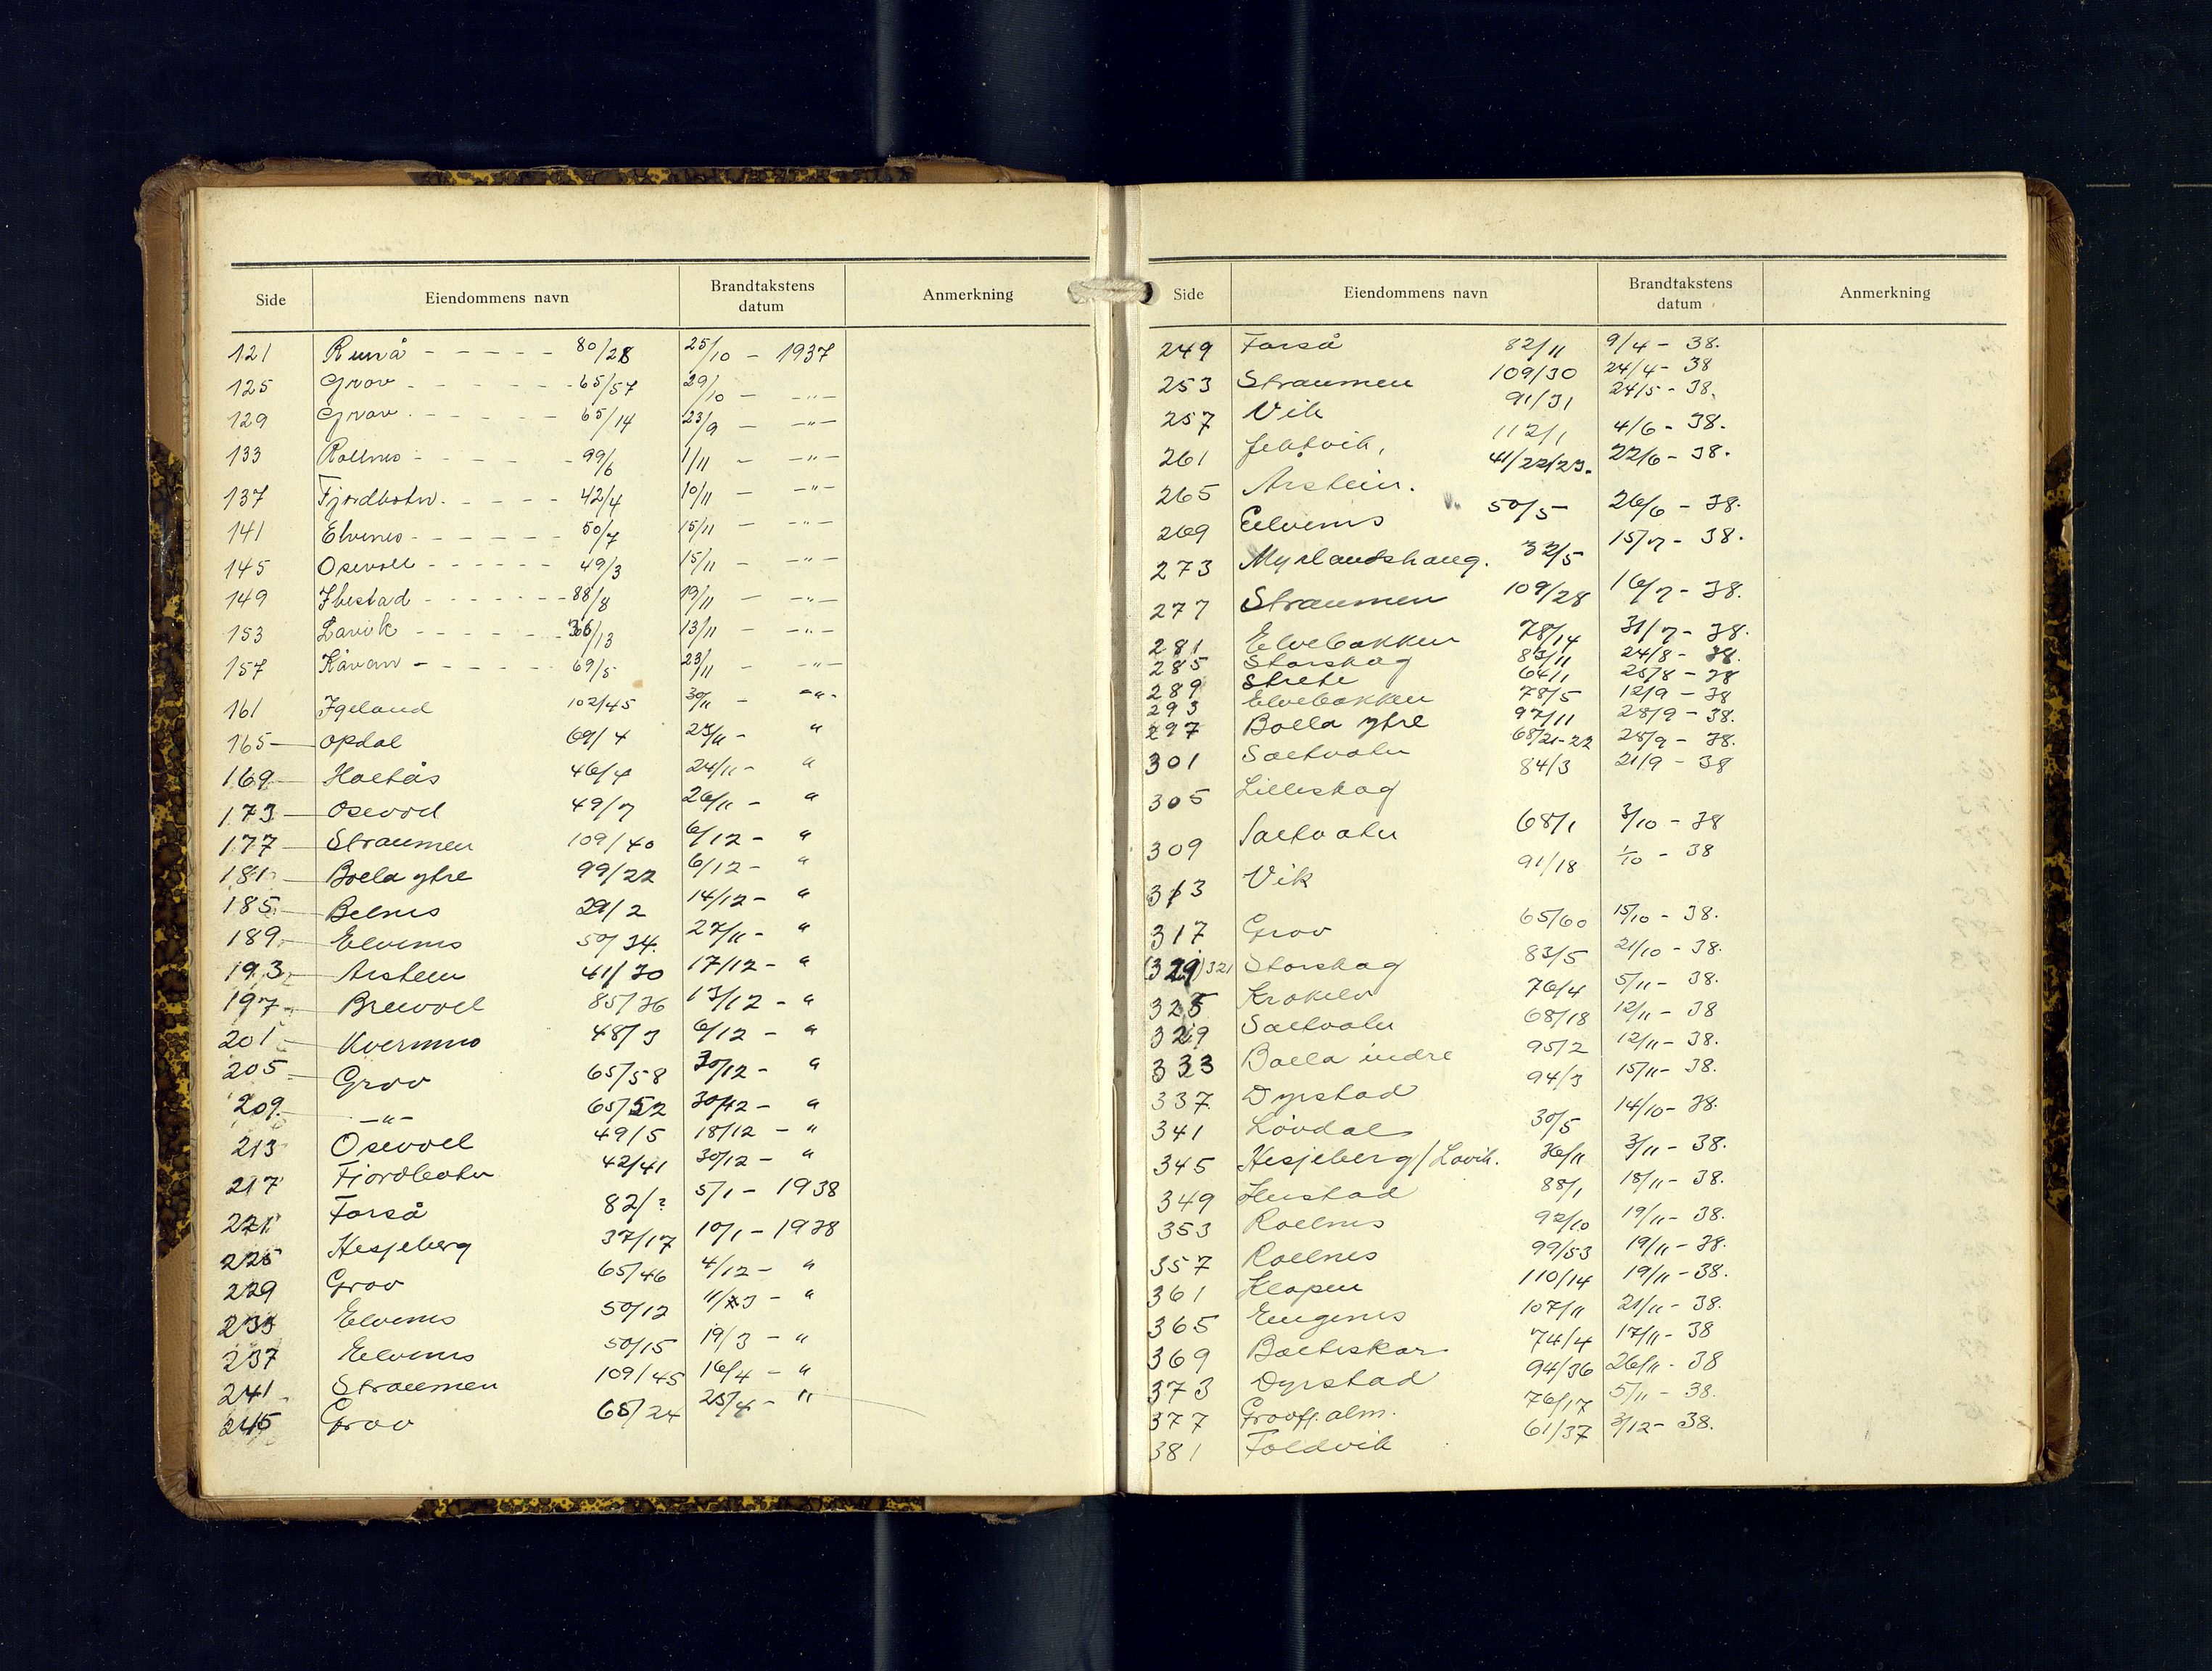 Side Eiendommens navn Brandtakstens datum Anmerkning
121 Runå - - - - - 80/28 25/10 - 1937
125 Grov - - - - - 65/57 29/10 - -"-
129 Grov - - - - - 65/14 23/9 - -"-
133 Rollnes - - - - 99/6 1/11 - -"-
137 Fjordbotn - - - - 42/4 10/11 - -"-
141 Elvenes - - - - - 50/7 15/11 - -"-
145 Osevoll - - - - - 49/3 15/11 - -"-
149 Ibestad - - - - - 88/8 19/11 - -"-
153 Lavik - - - - - 36/13 13/11 - -"-
157 Kåvan - - - - - 69/5 23/11 - -"-
161 Igeland 102/45 30/11 - -"-
165 Opdal 69/4 23/11 - "
169 Holtås 46/4 24/11 - "
173 Osevol 49/7 26/11 - "
177 Straumen 109/40 6/12 - "
181 Bolla ytre 99/22 6/12 - "
185 Belnes 29/2 14/12 - "
189 Elvenes 50/34 27/11 - "
193 Arstein 41/30 17/12 - "
197 Breivoll 85/36 13/12 - "
201 Kvernmo 48/3 6/12 - "
205 Grov 65/58 30/12 - "
209 -"- 65/52 30/12 - "
213 Osevoll 49/5 18/12 - "
217 Fjordbotn 42/41 30/12 - "
221 Forså 82/2 5/1 - 1938
225 Hesjeberg 37/17 10/1 - 1938
229 Grov 65/46 4/12 - "
233 Elvenes 50/12 11/3 - "
237 Elvenes 50/15 19/3 - "
241 Straumen 109/45 16/4 - "
245 Grov 65/24 25/4 - "
Side Eiendommens navn Brandtakstens datum Anmerkning
249 Forså 82/11 9/4 - 38.
253 Straumen 109/30 24/4 - 38
257 Vik 91/31 24/5 - 38.
261 Jektvik, 112/1 4/6 - 38.
265 Arstein. 41/22/23. 22/6 - 38.
269 Elvenes 50/5 26/6 - 38.
273 Myrlandshaug. 32/5 15/7 - 38.
277 Straumen 109/28 16/7 - 38.
281 Elvebakken 78/14 31/7 - 38.
285 Storskog 83/11 24/8 - 38.
289 Strete 64/1 25/8 - 38
293 Elvebakken 78/5 12/9 - 38
297 Bolla ytre 97/11 28/9 - 38.
301 Soltvatn 68/21-22 28/9 - 38.
305 Lilleskog 84/3 21/9 - 38
309 Soltvatn 68/1 3/10 - 38
313 Vik 91/18 1/10 - 38
317 Grov 65/60 15/10 - 38.
(329) 321 Storskog 83/5 21/10 - 38.
325 Krokelv 76/4 5/11 - 38.
329 Soltvatn 68/18 12/11 - 38
333 Bolla indre 95/2 12/11 - 38.
337 Dyrstad 94/3 15/11 - 38.
341 Lövdal 30/5 14/10 - 38.
345 Hesjeberg/Lavik. 36/11 3/11 - 38.
349 Ibestad 88/1 18/11 - 38.
353 Rollnes 92/10 19/11 - 38.
357 Rollnes 99/53 19/11 - 38.
361 Klåpen 110/14 19/11 - 38.
365 Engenes 107/11 21/11 - 38.
369 Bolteskar 74/4 17/11 - 38
373 Dyrstad 94/36 26/11 - 38
377 Grovfj. alm. 76/17 5/11 - 38.
381 Foldvik 61/37 3/12 - 38.